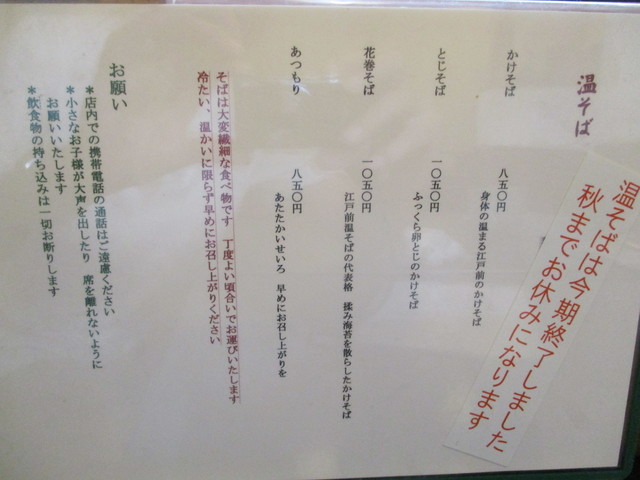 温そば
温そばは今期終了しました
秋までお休みになります
かけそば 八五〇円
身体の温まる江戸前のかけそば
とじそば 一〇五〇円
ふっくら卵とじのかけそば
花巻そば 一〇五〇円
江戸前温そばの代表格 揉み海苔を散らしたかけそば
あつもり 八五〇円
あたたかいせいろ 早めにお召し上がりを
そばは大変繊細な食べ物です 丁度よい頃合いでお運びいたします
冷たい、温かいに限らず早めにお召し上がりください
お願い
*店内での携帯電話の通話はご遠慮ください
*小さなお子様が大声を出したり 席を離れないように
お願いいたします
*飲食物の持ち込みは一切お断りします